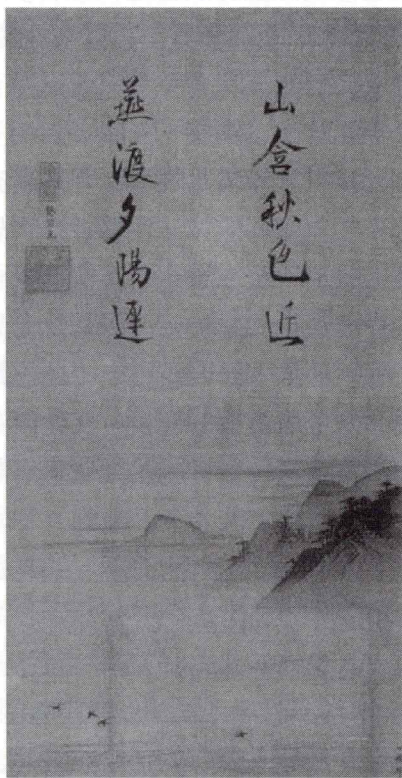 山含秋色近
燕渡夕陽遲